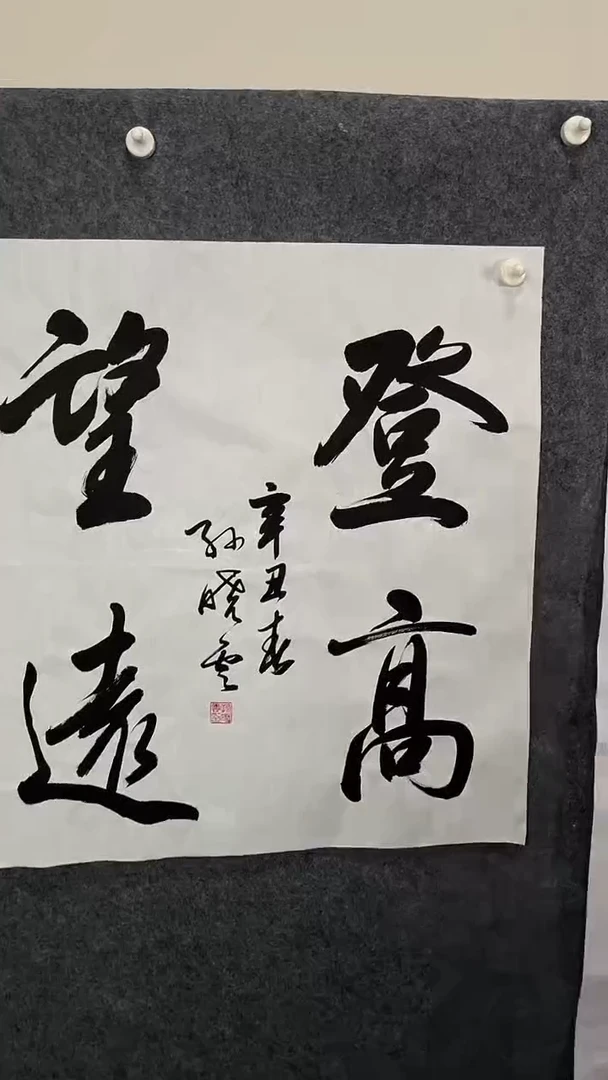 登高
望遠
辛丑春
孫曉雲